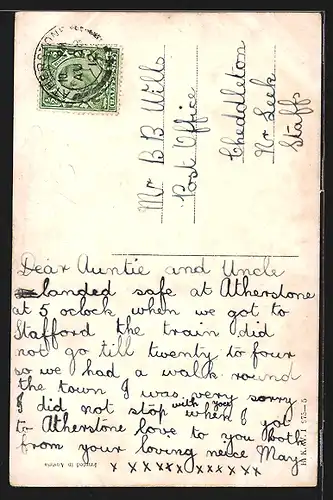 Mr B B Wills
Post Office
Cheddleton
Nr Leek
Staffs
Dear Auntie and Uncle
landed safe at Atherstone
at 5 oclock when we got to
Stafford the train did
not go till twenty to four
so we had a walk round
the town I was very sorry
I did not stop with you when I got
to Atherstone love to you both
from your loving neice May
x x x x x x x x x x x
Printed in